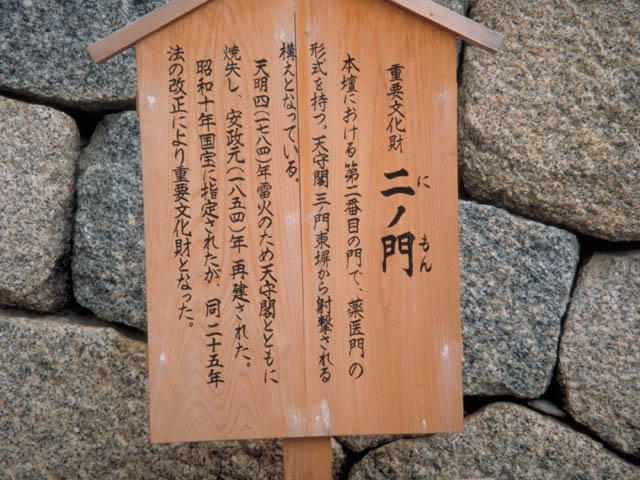 重要文化財
二ノ門
に
もん
本壇における第二番目の門で、薬医門の
形式を持つ。天守閣 三ノ門東塀から射撃される
構えとなっている。
天明四(一七八四)年雷火のため天守閣とともに
焼失し、安政元(一八五四)年 再建された。
昭和十年国宝に指定されたが、同二十五年
法の改正により重要文化財となった。